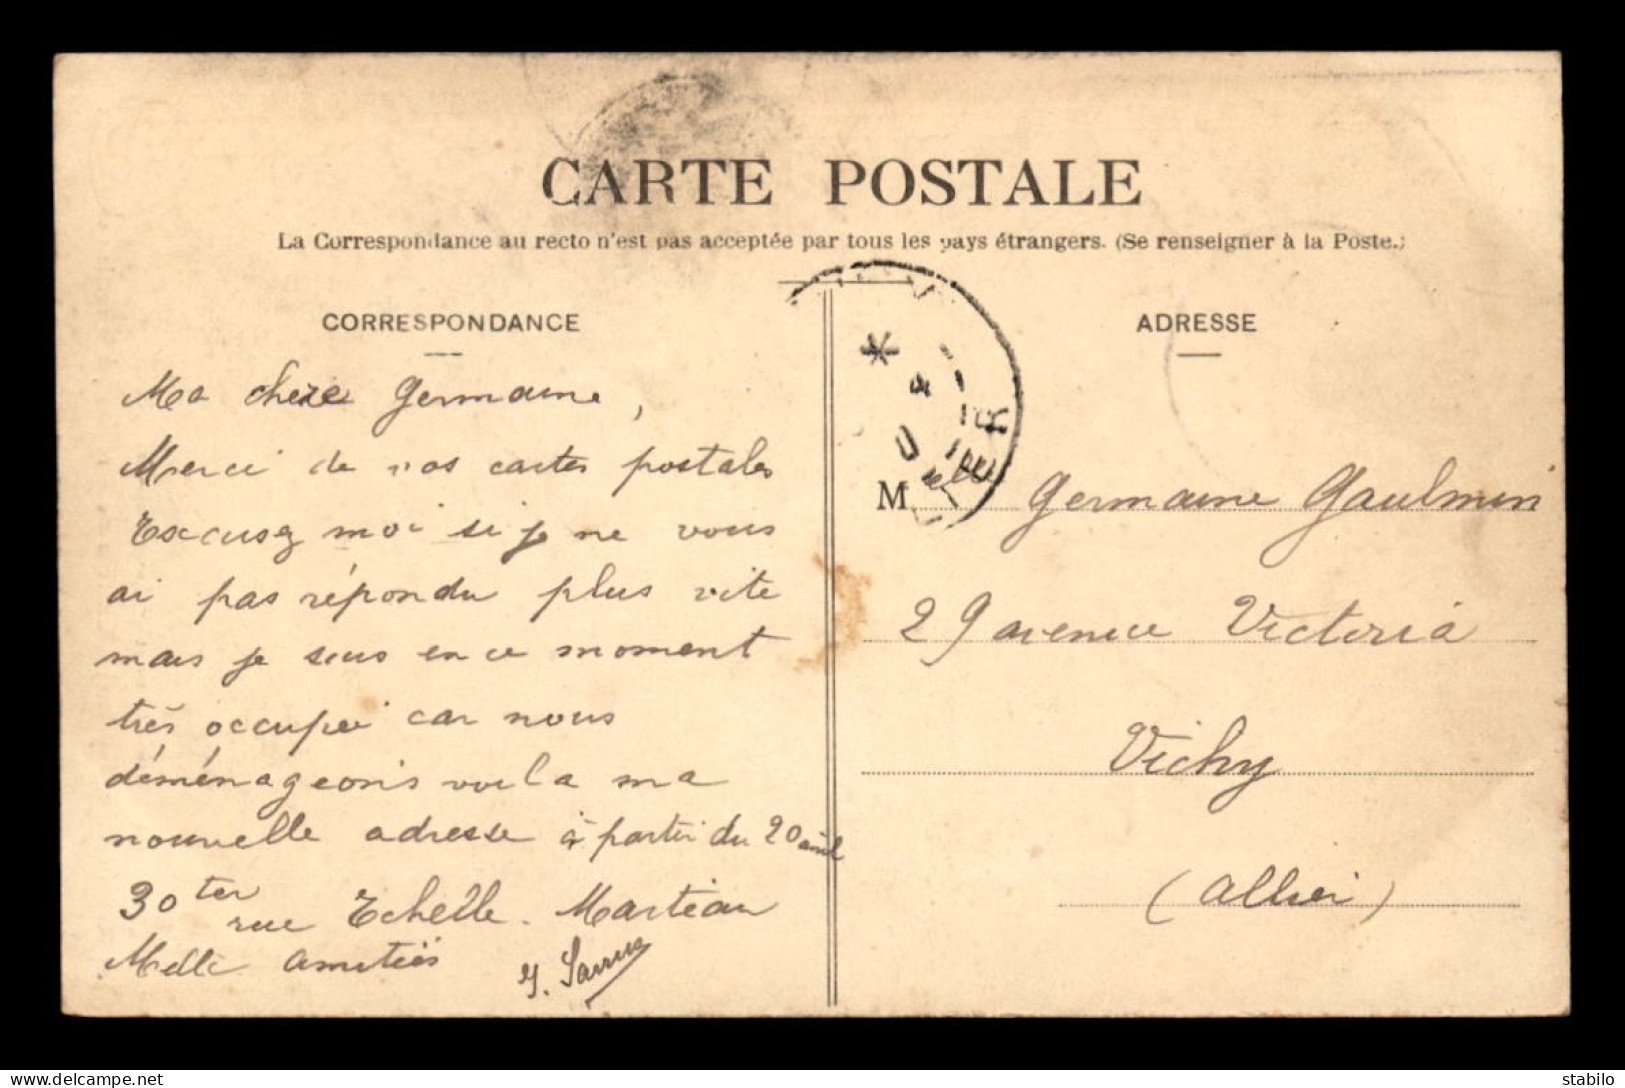 CARTE POSTALE
La Correspondance au recto n'est pas acceptée par tous les pays étrangers. (Se renseigner à la Poste.)
CORRESPONDANCE
Ma chere Germaine,
Merci de vos cartes postales
Excusez moi si je ne vous
ai pas répondu plus vite
mais je suis en ce moment
très occupée car nous
déménageons voila ma
nouvelle adresse à partir du 20 avril
30 ter rue Echelle. Marteau
Melle amitiés
ADRESSE
Melle Germaine Gaulmin
29 avenue Victoria
Vichy
(Allier)
delcampe.net
stabilo